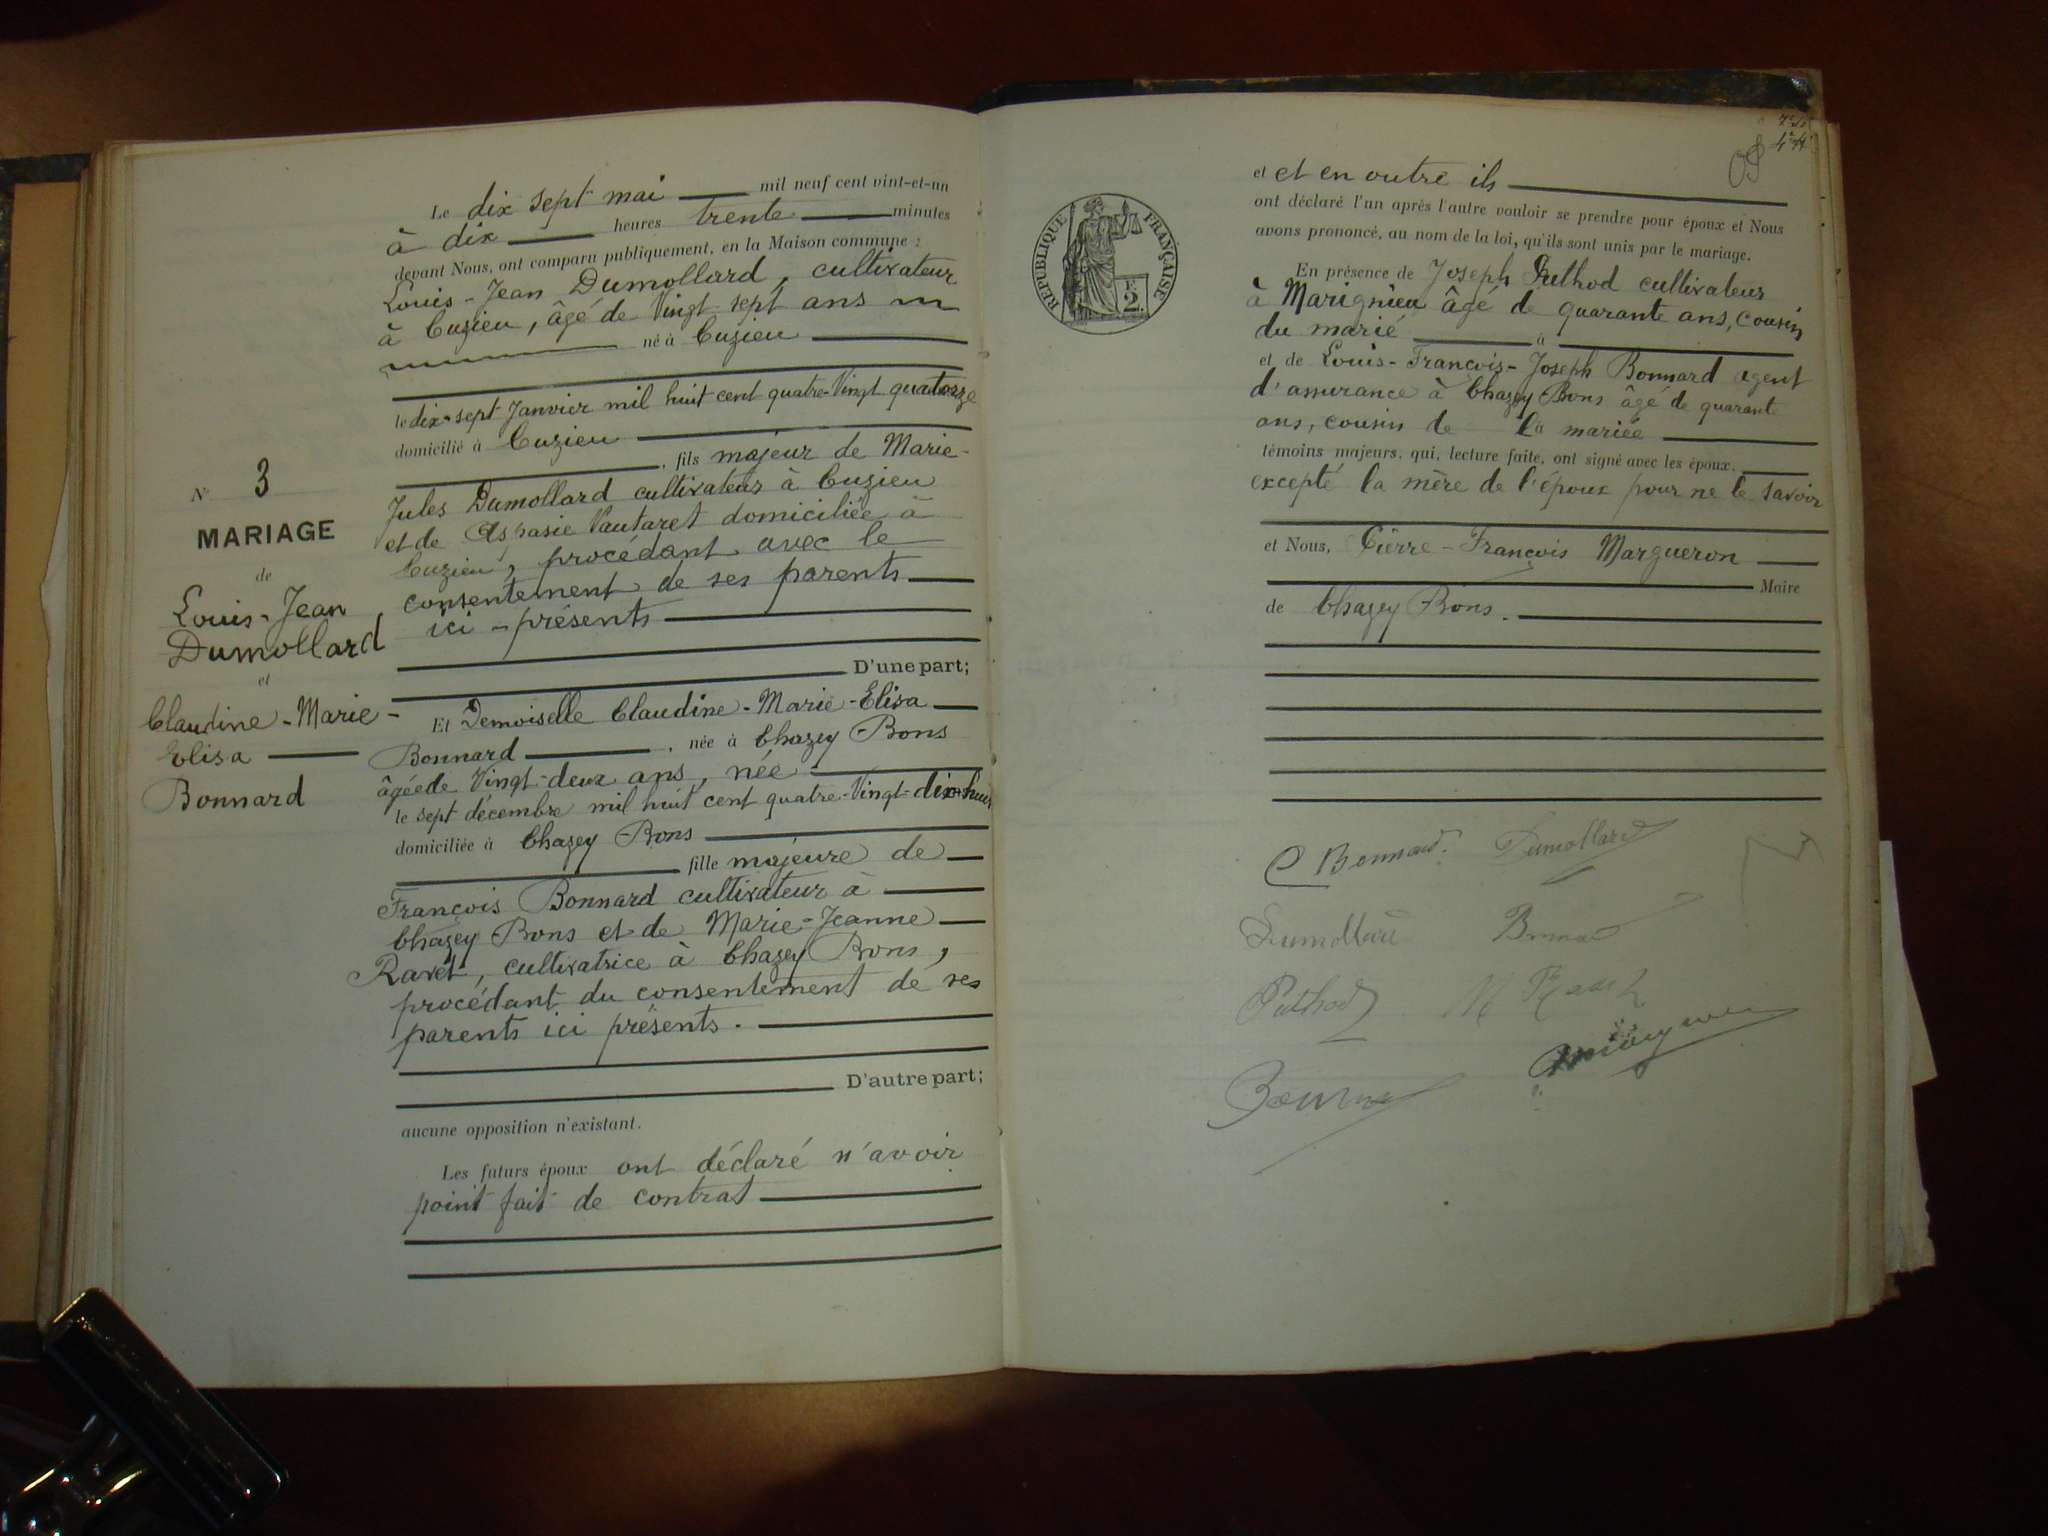 N° 3
MARIAGE
de
Louis-Jean
Dumollard
et
Claudine-Marie-
Elisa
Bonnard
Le dix sept mai mil neuf cent vint-et-un
à dix heures trente minutes
devant Nous, ont comparu publiquement, en la Maison commune :
Louis-Jean Dumollard, cultivateur
à Cuzieu, âgé de Vingt sept ans
né à Cuzieu
le dix-sept Janvier mil huit cent quatre-Vingt quatorze
domicilié à Cuzieu
, fils majeur de Marie-
Jules Dumollard cultivateurs à Cuzieu
et de Aspasie Vautaret domiciliée à
Cuzieu, procédant avec le
consentement de ses parents
ici-présents
D'une part;
Et Demoiselle Claudine-Marie-Elisa
Bonnard , née à Chazey Bons
âgée de Vingt-deux ans, née
le sept décembre mil huit cent quatre-Vingt-dix-huit
domiciliée à Chazey Bons
fille majeure de
François Bonnard cultivateur à
Chazey Bons et de Marie-Jeanne
Ravet, cultivatrice à Chazey Bons,
procédant du consentement de ses
parents ici présents.
D'autre part;
aucune opposition n'existant.
Les futurs époux ont déclaré n'avoir
point fait de contrat
RÉPUBLIQUE FRANÇAISE
2
et et en outre ils
ont déclaré l'un après l'autre vouloir se prendre pour époux et Nous
avons prononcé, au nom de la loi, qu'ils sont unis par le mariage.
En présence de Joseph Puthod cultivateur
à Marignieu âgé de quarante ans, cousin
du marié à
et de Louis-François-Joseph Bonnard agent
d'assurance à Chazey Bons âgé de quarante
ans, cousin de la mariée
témoins majeurs, qui, lecture faite, ont signé avec les époux.
excepté la mère de l'époux pour ne le savoir
et Nous, Pierre-François Margueron
Maire
de Chazey Bons.
C Bonnard Dumollard
Dumollard Bonnard
Puthod